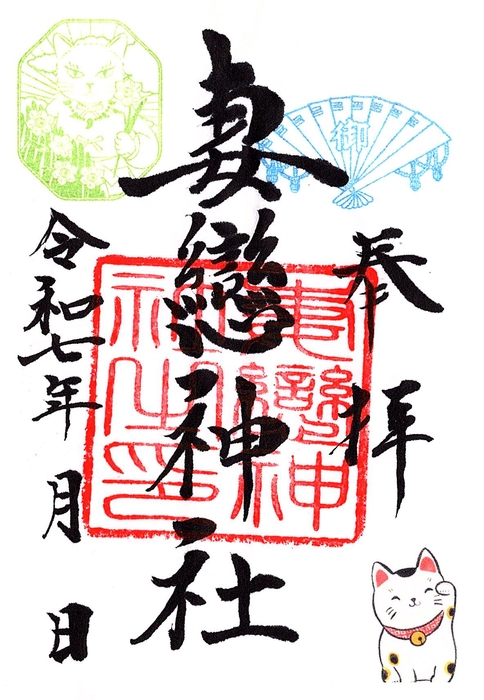 奉拝
妻戀神社
令和七年 月 日
御
妻戀神
社之印